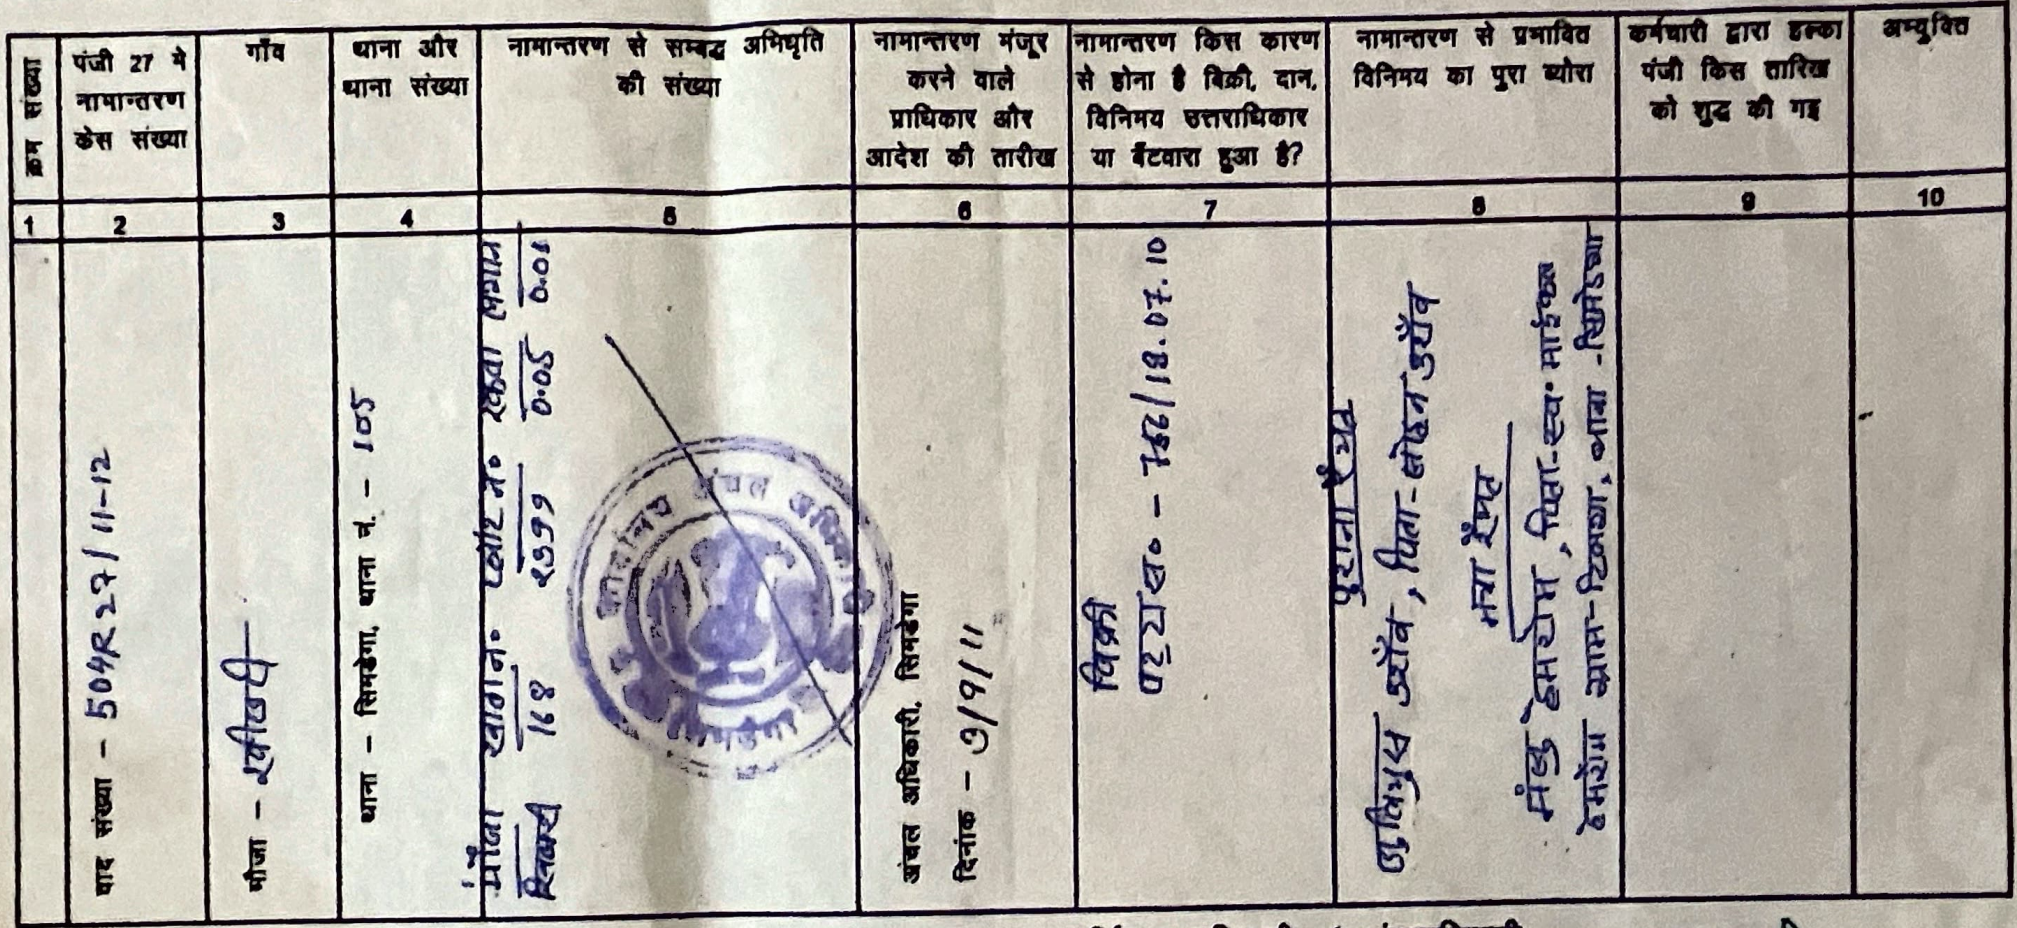 क्रम संख्या
पंजी 27 मे
नामान्तरण
केस संख्या
गाँव
थाना और
थाना संख्या
नामान्तरण से सम्बद्ध अभिधृति
की संख्या
नामान्तरण मंजूर
करने वाले
प्राधिकार और
आदेश की तारीख
नामान्तरण किस कारण
से होना है बिक्री, दान,
विनिमय उत्तराधिकार
या बँटवारा हुआ है?
नामान्तरण से प्रभावित
विनिमय का पूरा ब्योरा
कर्मचारी द्वारा हल्का
पंजी किस तारिख
को शुद्ध की गइ
अभ्युक्ति
1 2 3 4 5 6 7 8 9 10
वाद संख्या - 504R27/11-12
मौजा -
थाना - सिमडेगा, थाना नं. - 105
मौजा खाता नं० प्लॉट नं० रकवा लगान
168 2399 0.05 0.01
कार्यालय अंचल अधिकारी
सिमडेगा
अंचल अधिकारी, सिमडेगा
दिनांक - 7/9/11
बिक्री
पट्टा सं० - /18.07.10
पुराना रैयत
जुलियुस उराँव, पिता - लोहन उराँव
नया रैयत
मंजु हेमरोम, पिता - स्व. माईकल
हेमरोम ग्राम- थाना - सिमडेगा